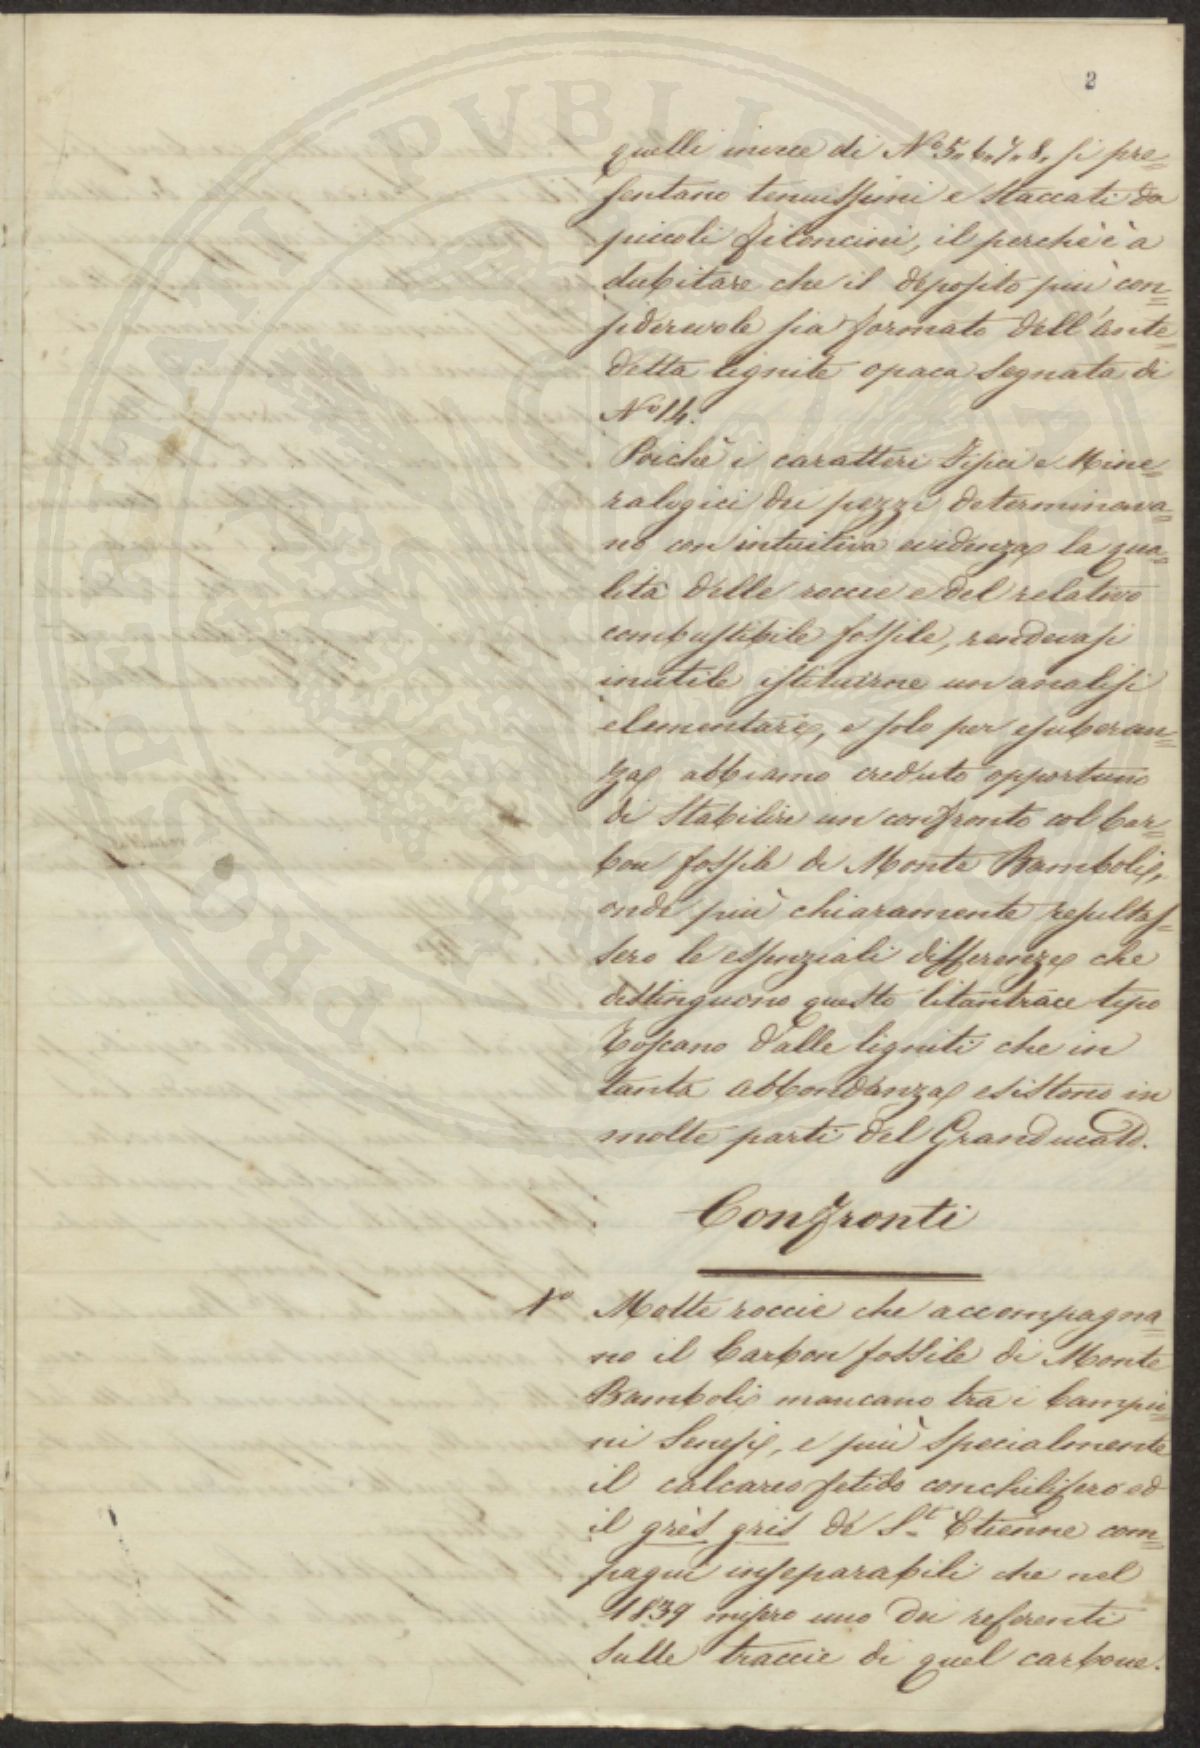 2
quelli invece di Nº 5, 6, 7, 8, si pre=
sentano tenuissimi e staccati da
piccoli filoncini, il perchè è a
dubitare che il deposito più con=
siderevole sia formato dell'ante=
detta lignite opaca segnata di
Nº 14.
Poichè i caratteri Fisici e Mine=
ralogici dei pezzi determinava=
no con intuitiva evidenza la qua=
lità delle roccie e del relativo
combustibile fossile, rendevasi
inutile istituirne un analisi
elementare, e solo per esuberan=
za abbiamo creduto opportuno
di stabilire un confronto col Car=
bon fossile di Monte Bamboli,
onde più chiaramente resultas=
sero le essenziali differenze che
distinguono questo litantrace tipo
Toscano dalle ligniti che in
tanta abbondanza esistono in
molte parti del Granducato.
Confronti
1º Molte roccie che accompagna=
no il Carbon fossile di Monte
Bamboli mancano tra i Campio=
ni Senesi, e più specialmente
il calcareo fetido conchilifero ed
il grès gris di S.t Etienne com=
pagni inseparabili che nel
1839 misero uno dei referenti
sulle traccie di quel carbone.
PROSPERITATI PVBLICAE